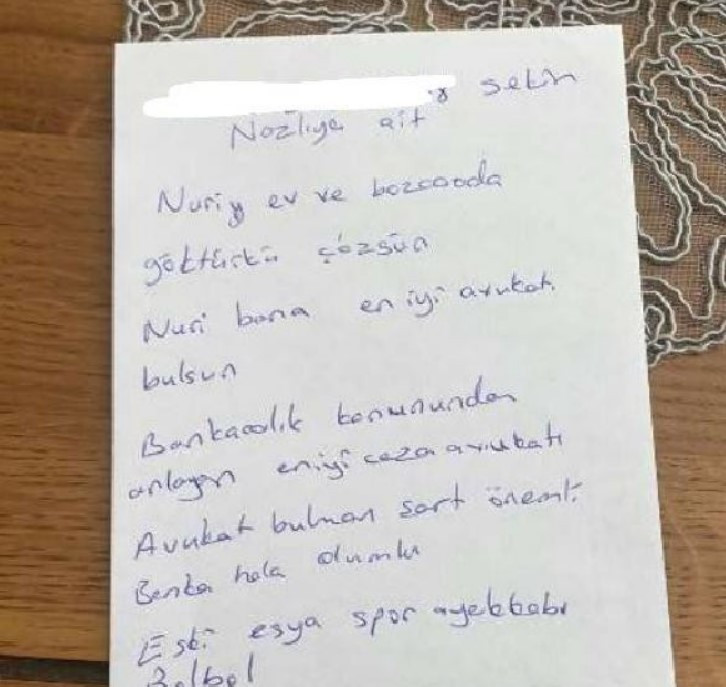 sekin
Nazlıya ait
Nuriy ev ve bozcaada
göktürkü çözsün
Nuri bana en iyi avukatı
bulsun
Bankacılık konunundan
anlayan en iyi ceza avukatı
Avukat bulman şart önemli
Banka hala olumlu
Eski esya spor ayakkabı
Bolbol